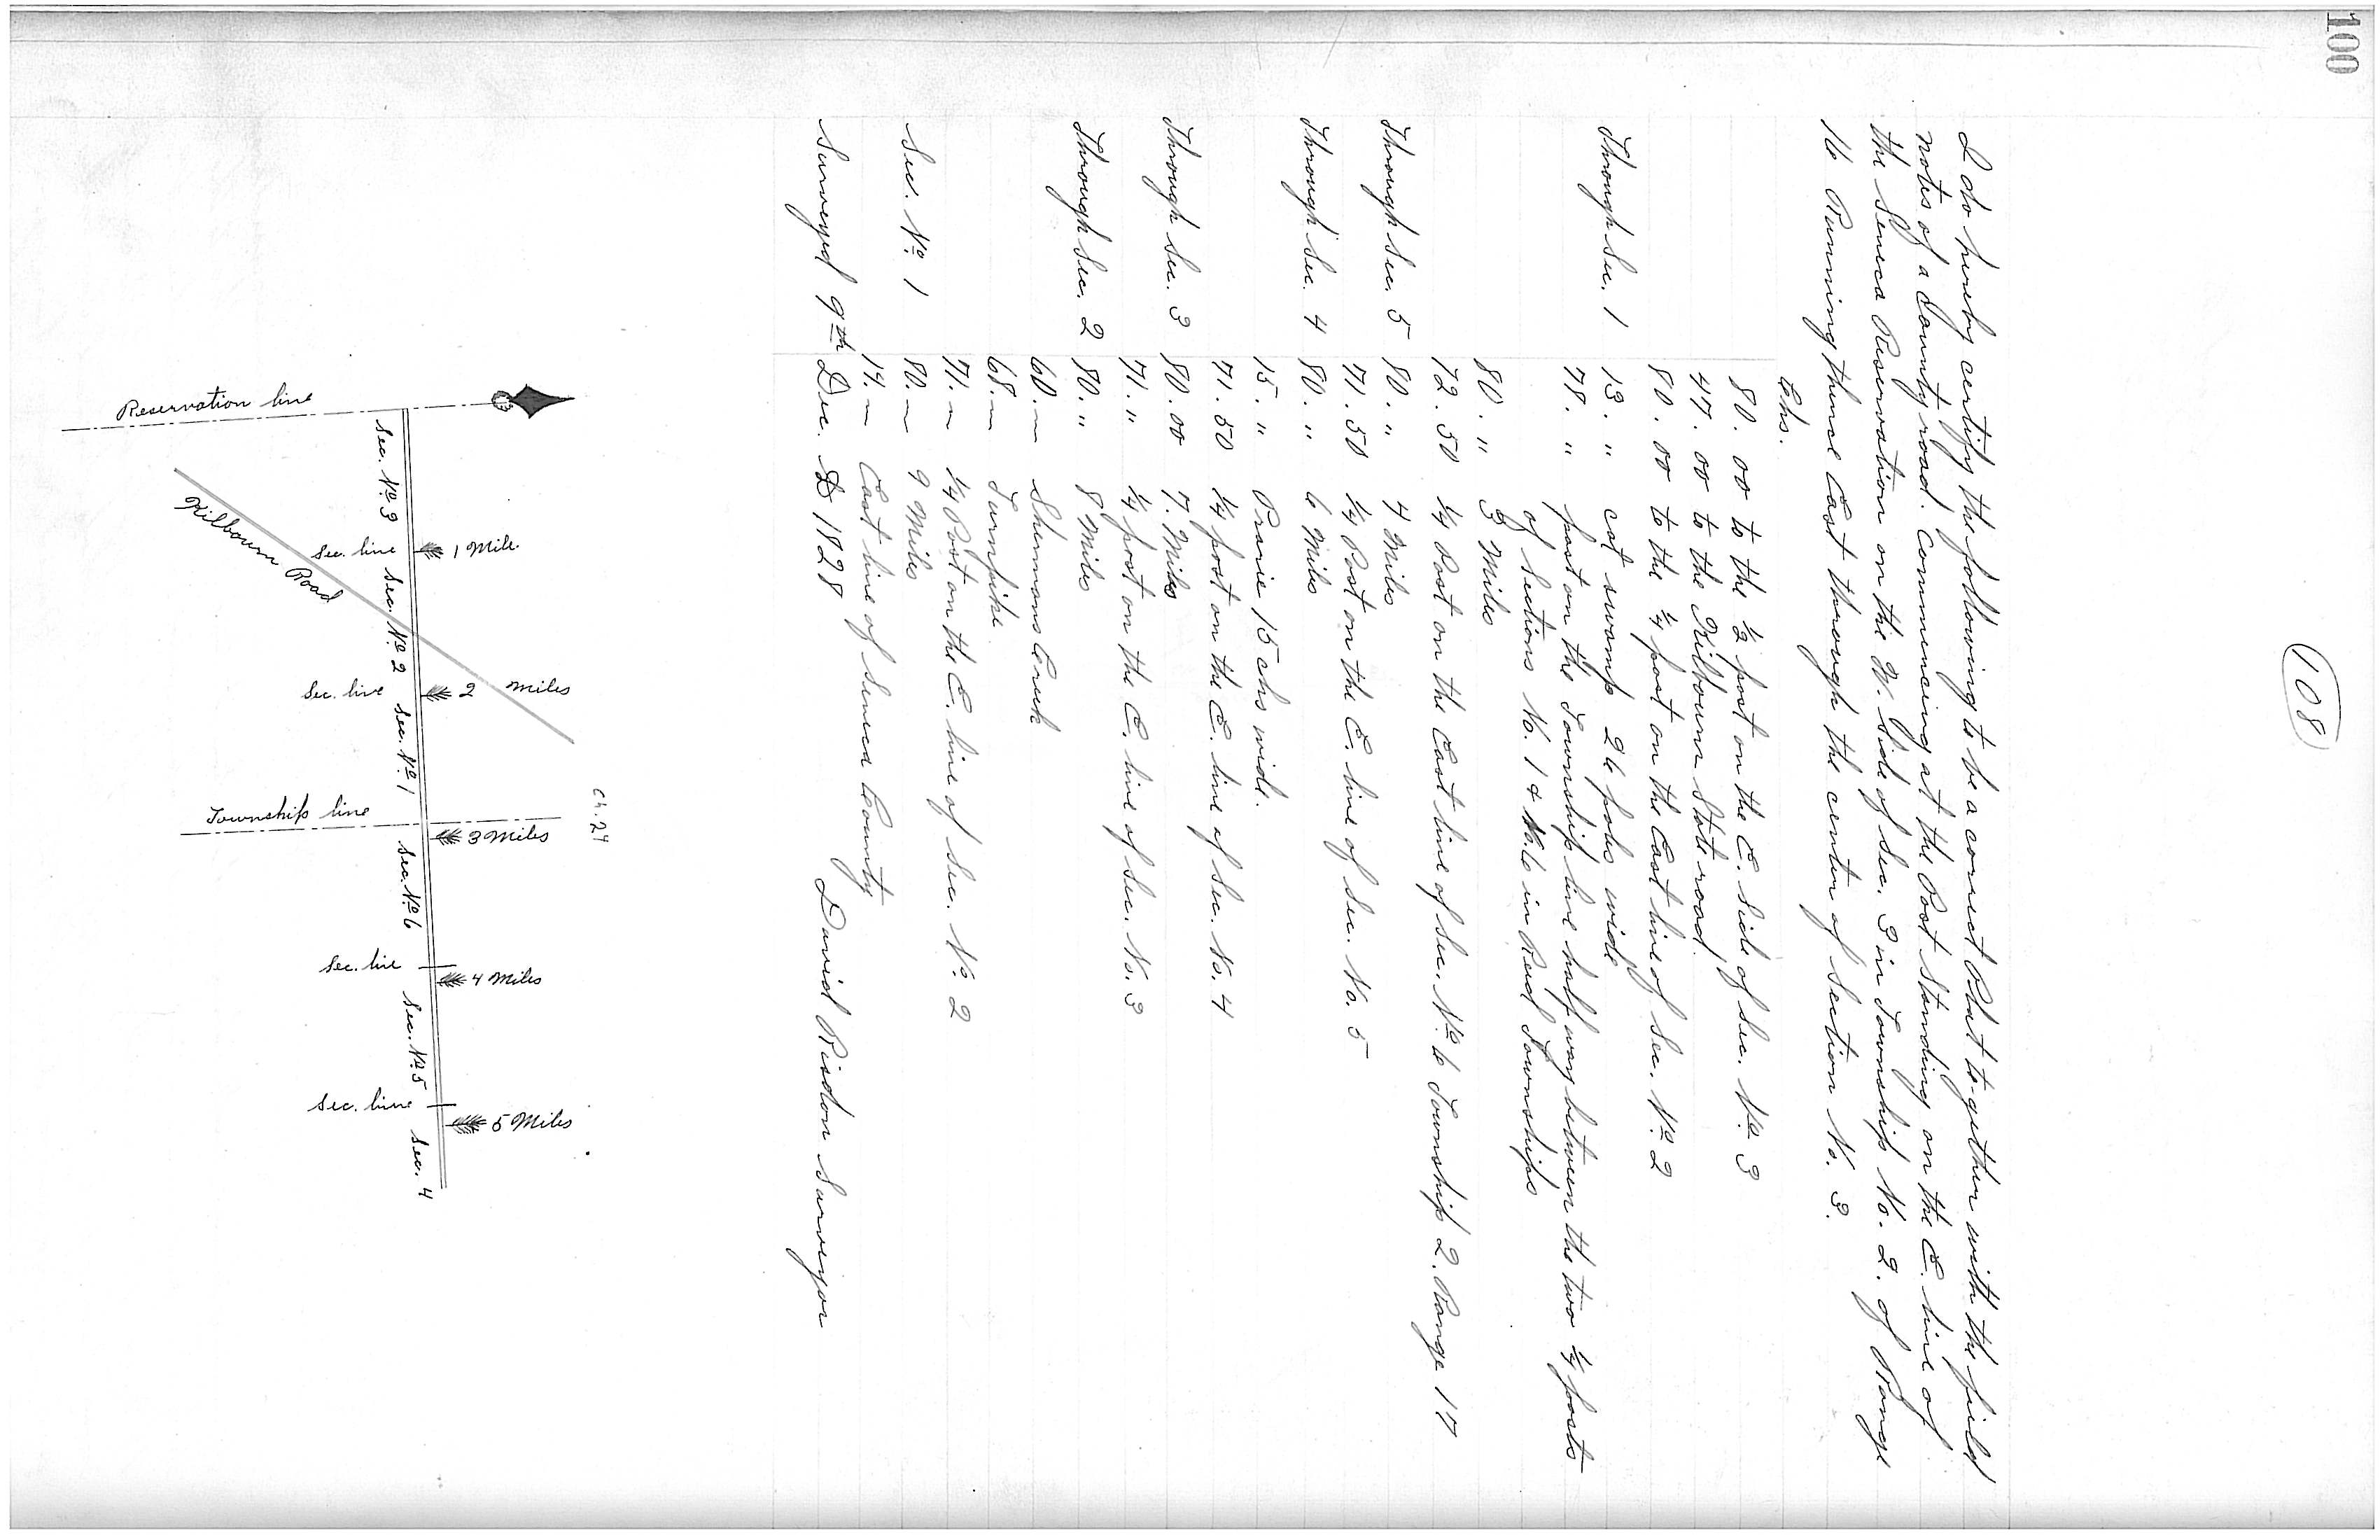 100
108
I do hereby certify the following to be a correct Plat together with the field
notes of a County road. Commencing at the Post Standing on the E. line of
the Seneca Reservation on the W. Side of Sec. 3 in Township No. 2. of Range
16 Running thence East through the center of Section No. 3.
Chs.
80. 00 to the ½ post on the E. Side of Sec. No. 3
47. 00 to the Kilbourn State road
80. 00 to the ¼ post on the East line of Sec. No. 2
Through Sec. 1 13. " cat swamp 26 poles wide
78. " post on the Township line half way between the two ¼ posts
of Sections No. 1 & No. 6 in Said Townships
80. " 3 Miles
72. 50 ¼ Post on the East line of Sec. No. 6 Township 2. Range 17
Through Sec. 5 80. " 4 Miles
71. 50 ¼ Post on the E. line of Sec. No. 5
Through Sec. 4 80. " 6 Miles
15. " Prarie 15 chs wide.
71. 50 ¼ post on the E. line of Sec. No. 4
Through Sec. 3 80. 00 7. Miles
71. " ¼ post on the E. line of Sec. No. 3
Through Sec. 2 80. " 8 Miles
60. " Shermans Creek
68. " Turnpike
71. " ¼ Post on the E. line of Sec. No. 2
Sec. No. 1 80. " 9 Miles
14. " East line of Seneca County
Surveyed 9th Dec. D 1828 David Risdon Surveyor
Ch. 24
Reservation line
Sec. No. 3
Sec. line
1 Mile.
Kilbourn Road
Sec. No. 2
Sec. line
2 miles
Sec. No. 1
Township line
3 Miles
Sec. No. 6
Sec. line
4 Miles
Sec. No. 5
Sec. line
5 Miles
Sec. 4